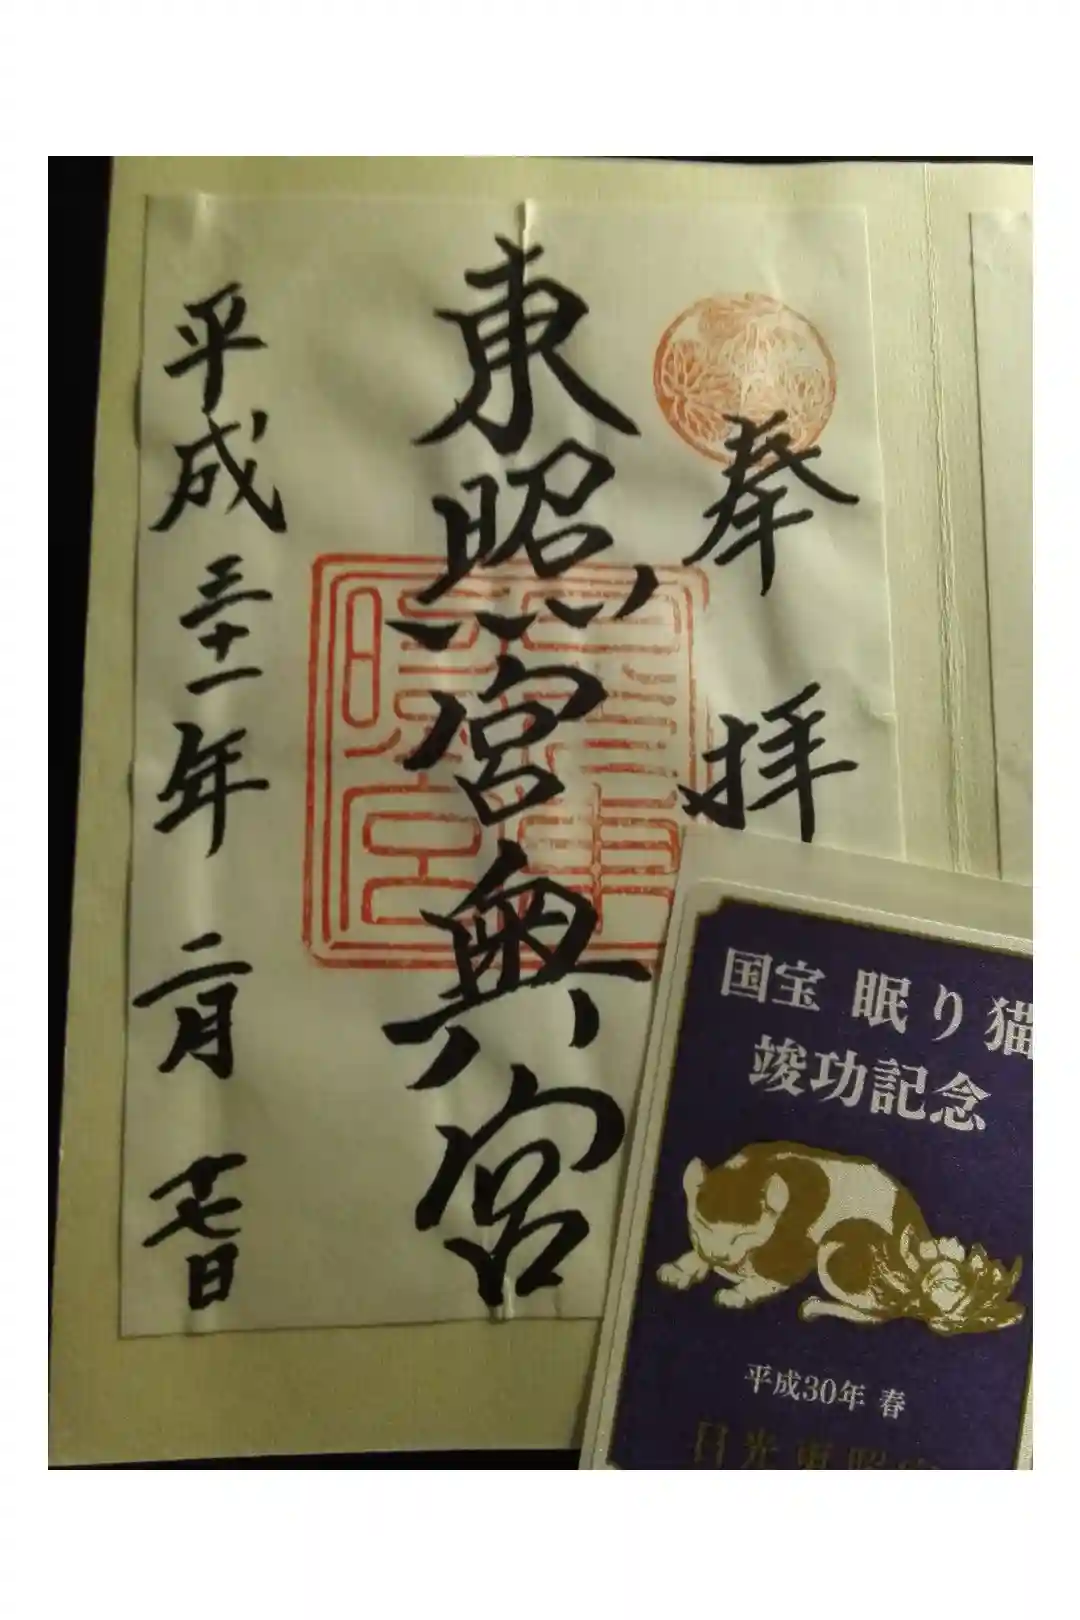 奉拝
東照宮奥宮
平成三十一年二月十七日
国宝 眠り猫
竣功記念
平成30年 春
日光東照宮